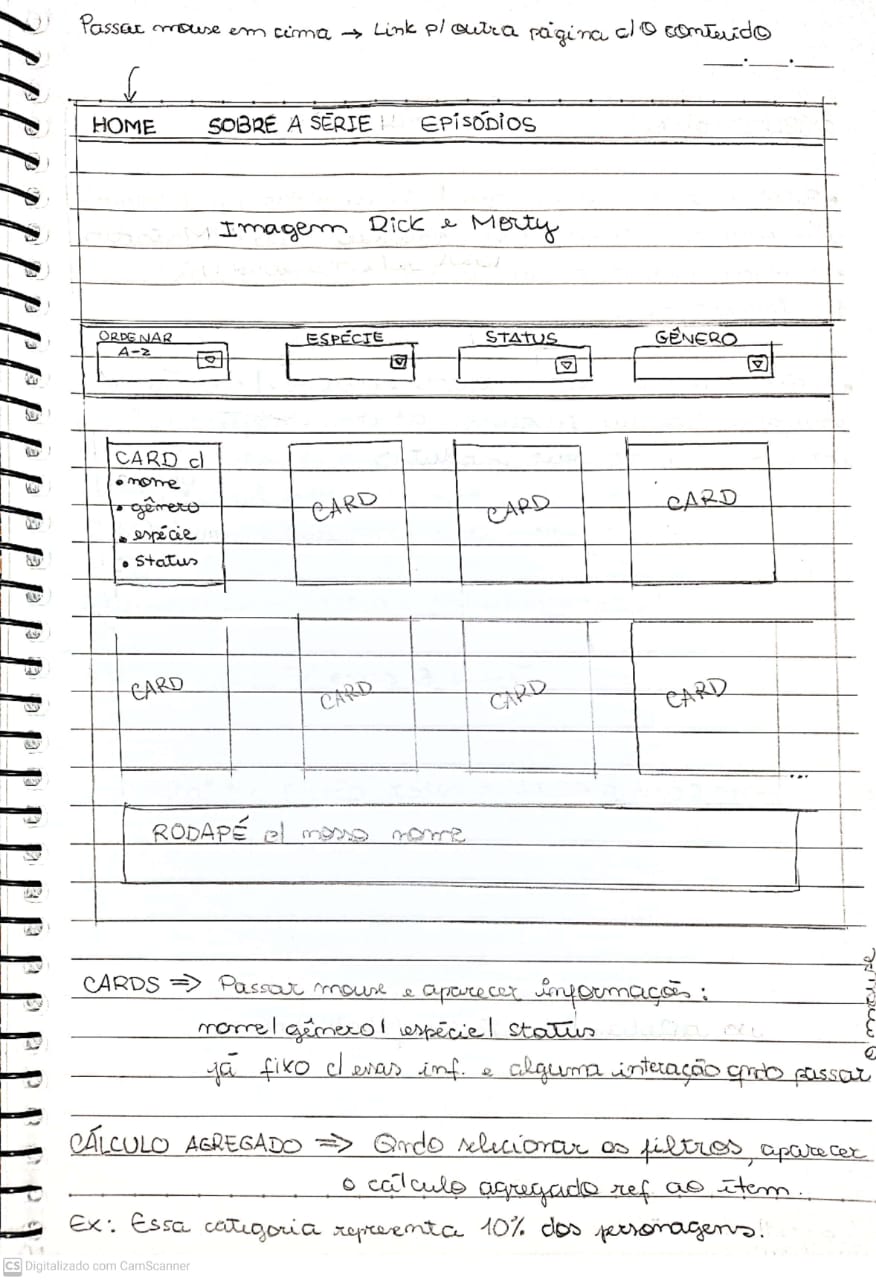 Passar mouse em cima → Link p/ outra página c/ o conteúdo
HOME SOBRE A SÉRIE EPISÓDIOS
Imagem Rick e Morty
ORDENAR ESPÉCIE STATUS GÊNERO
A-Z
CARD c/
• nome
• gênero
• espécie
• status
CARD CARD CARD
CARD CARD CARD CARD
...
RODAPÉ c/ nosso nome
CARDS ⇒ Passar mouse e aparecer informações:
nome/ gênero/ espécie/ status
já fixo c/ essas inf. e alguma interação qndo passar
o mouse
CÁLCULO AGREGADO ⇒ Qndo selecionar os filtros, aparecer
o cálculo agregado ref ao item.
Ex: Essa categoria representa 10% dos personagens.
CS Digitalizado com CamScanner